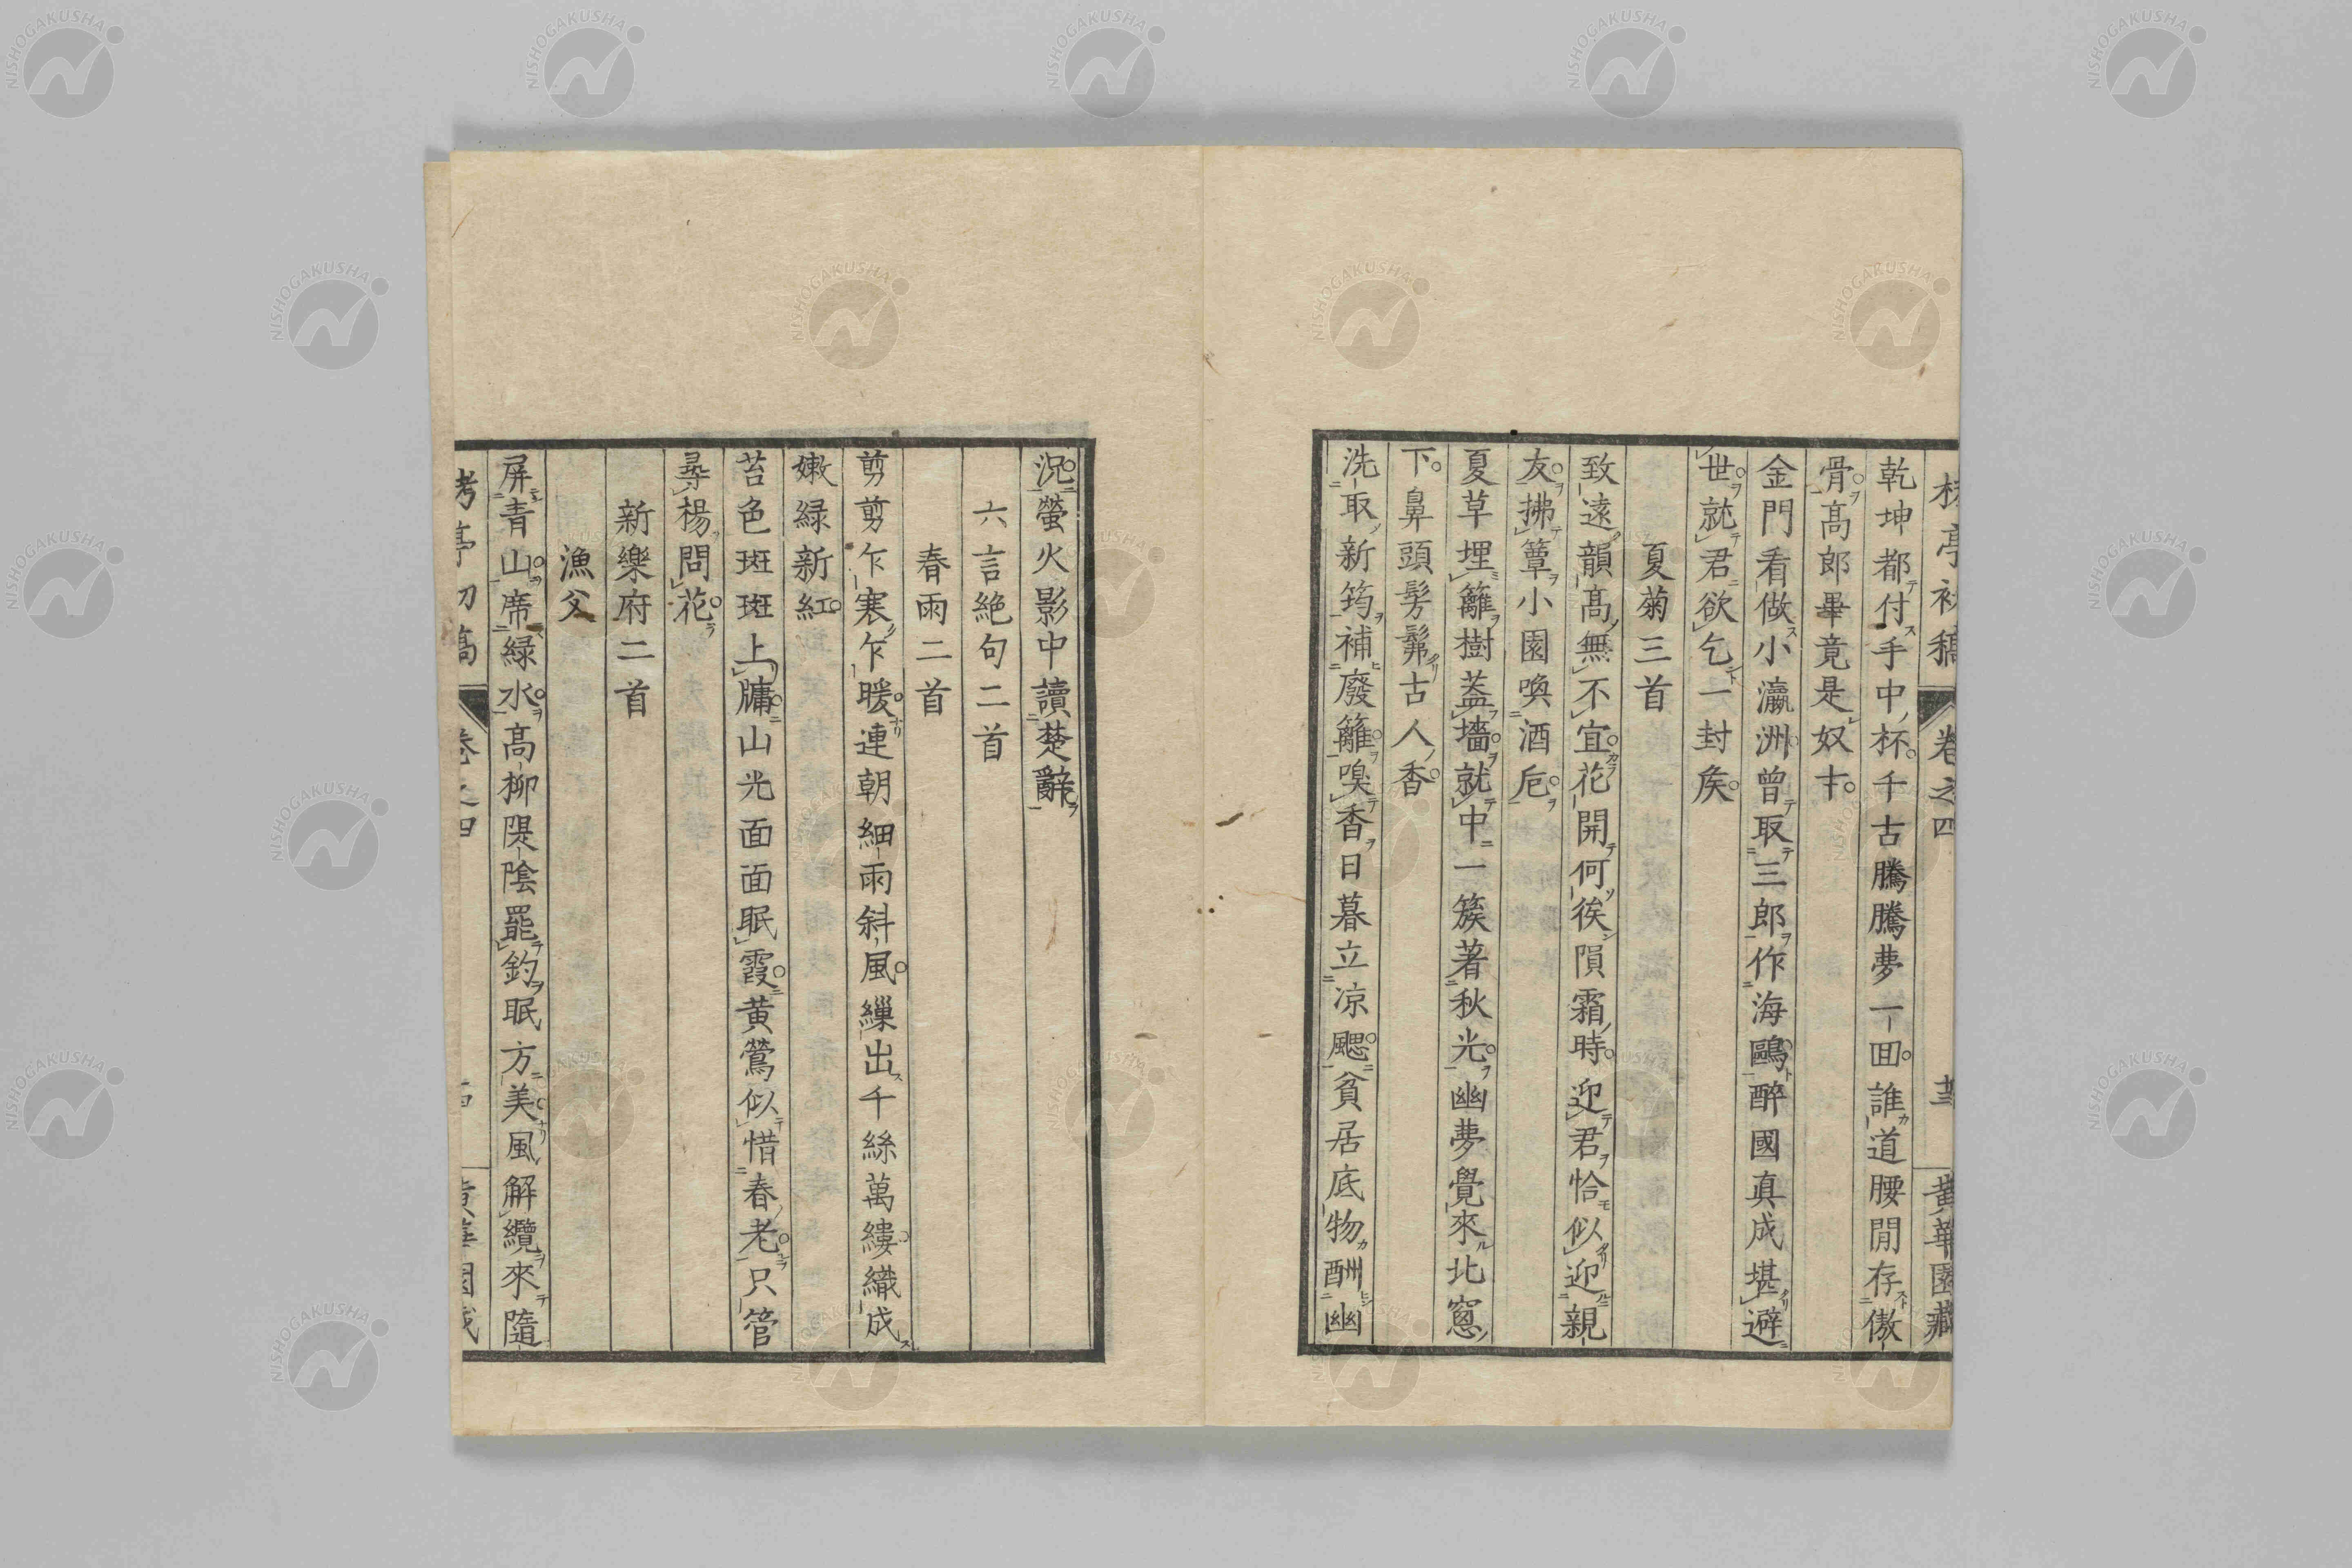 亭初稿
卷之四
黃華園藏
乾坤都付手中杯千古騰騰夢一回誰道腰間存傲
骨高郎畢竟是奴才
金門看做小瀛洲曾取三郎作海鷗醉國真成堪避
世就君欲乞一封矦
夏菊三首
致遠韻高無不宜花開何俟隕霜時迎君恰似迎親
友拂簟小園喚酒巵
夏草埋籬樹蓋墻就中一簇著秋光幽夢覺來北窓
下鼻頭髣髴古人香
洗取新筠補廢籬嗅香日暮立凉颸貧居底物酬幽
況螢火影中讀楚辭
六言絕句二首
春雨二首
剪剪乍寒乍暖連朝細雨斜風繅出千絲萬縷織成
嫩綠新紅
苔色斑斑上牗山光面面眠霞黃鶯似惜春老只管
尋楊問花
新樂府二首
漁父
屏青山席綠水高柳隄陰罷釣眠方美風解纜來隨
NISHOGAKUSHA